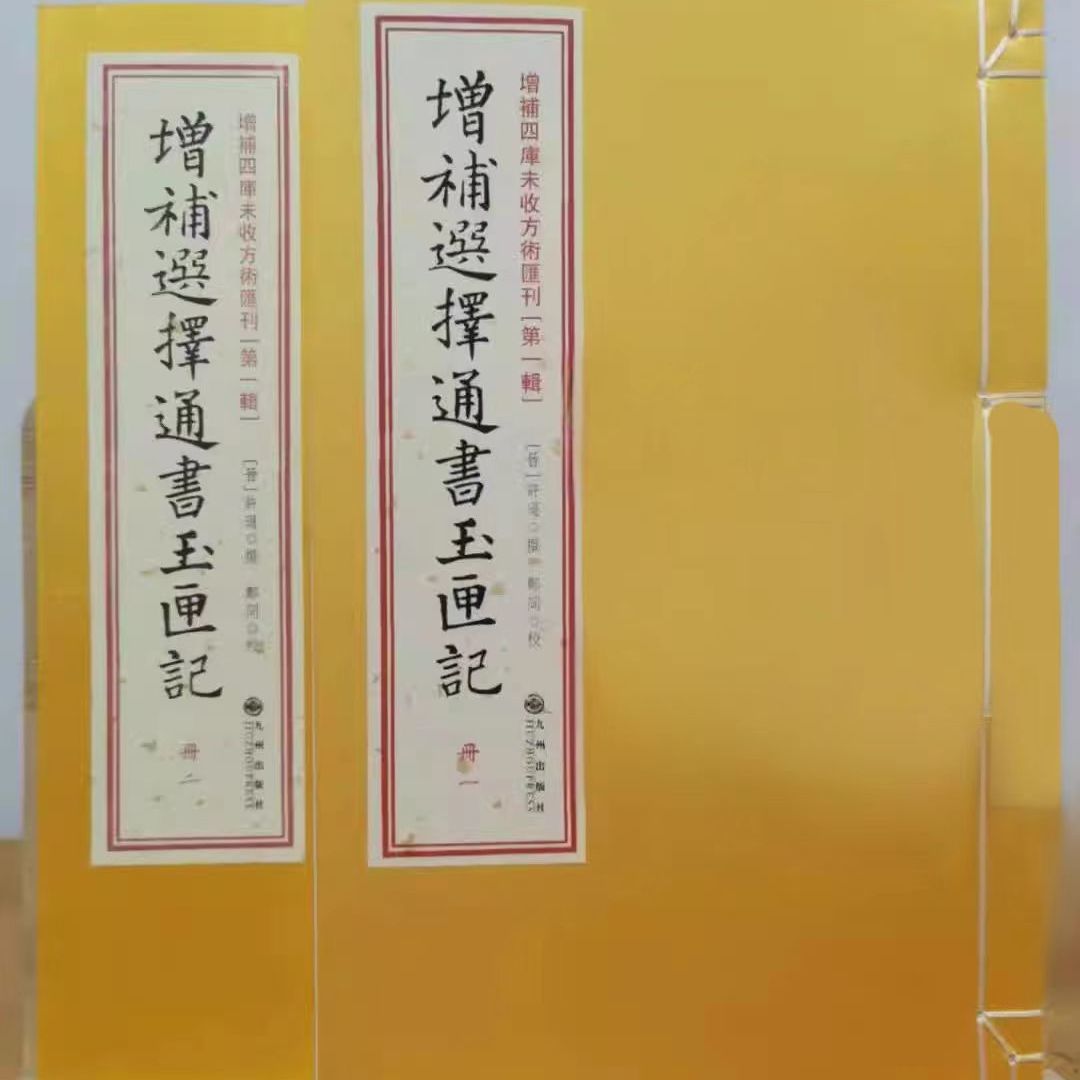 增補四庫未收方術匯刊[第一輯]
[晉]許遜◎撰 鄭同◎校
九州出版社
JIUZHOUPRESS
增補選擇通書玉匣記
冊一
增補四庫未收方術匯刊[第一輯]
[晉]許遜◎撰 鄭同◎校
九州出版社
JIUZHOUPRESS
增補選擇通書玉匣記
冊二